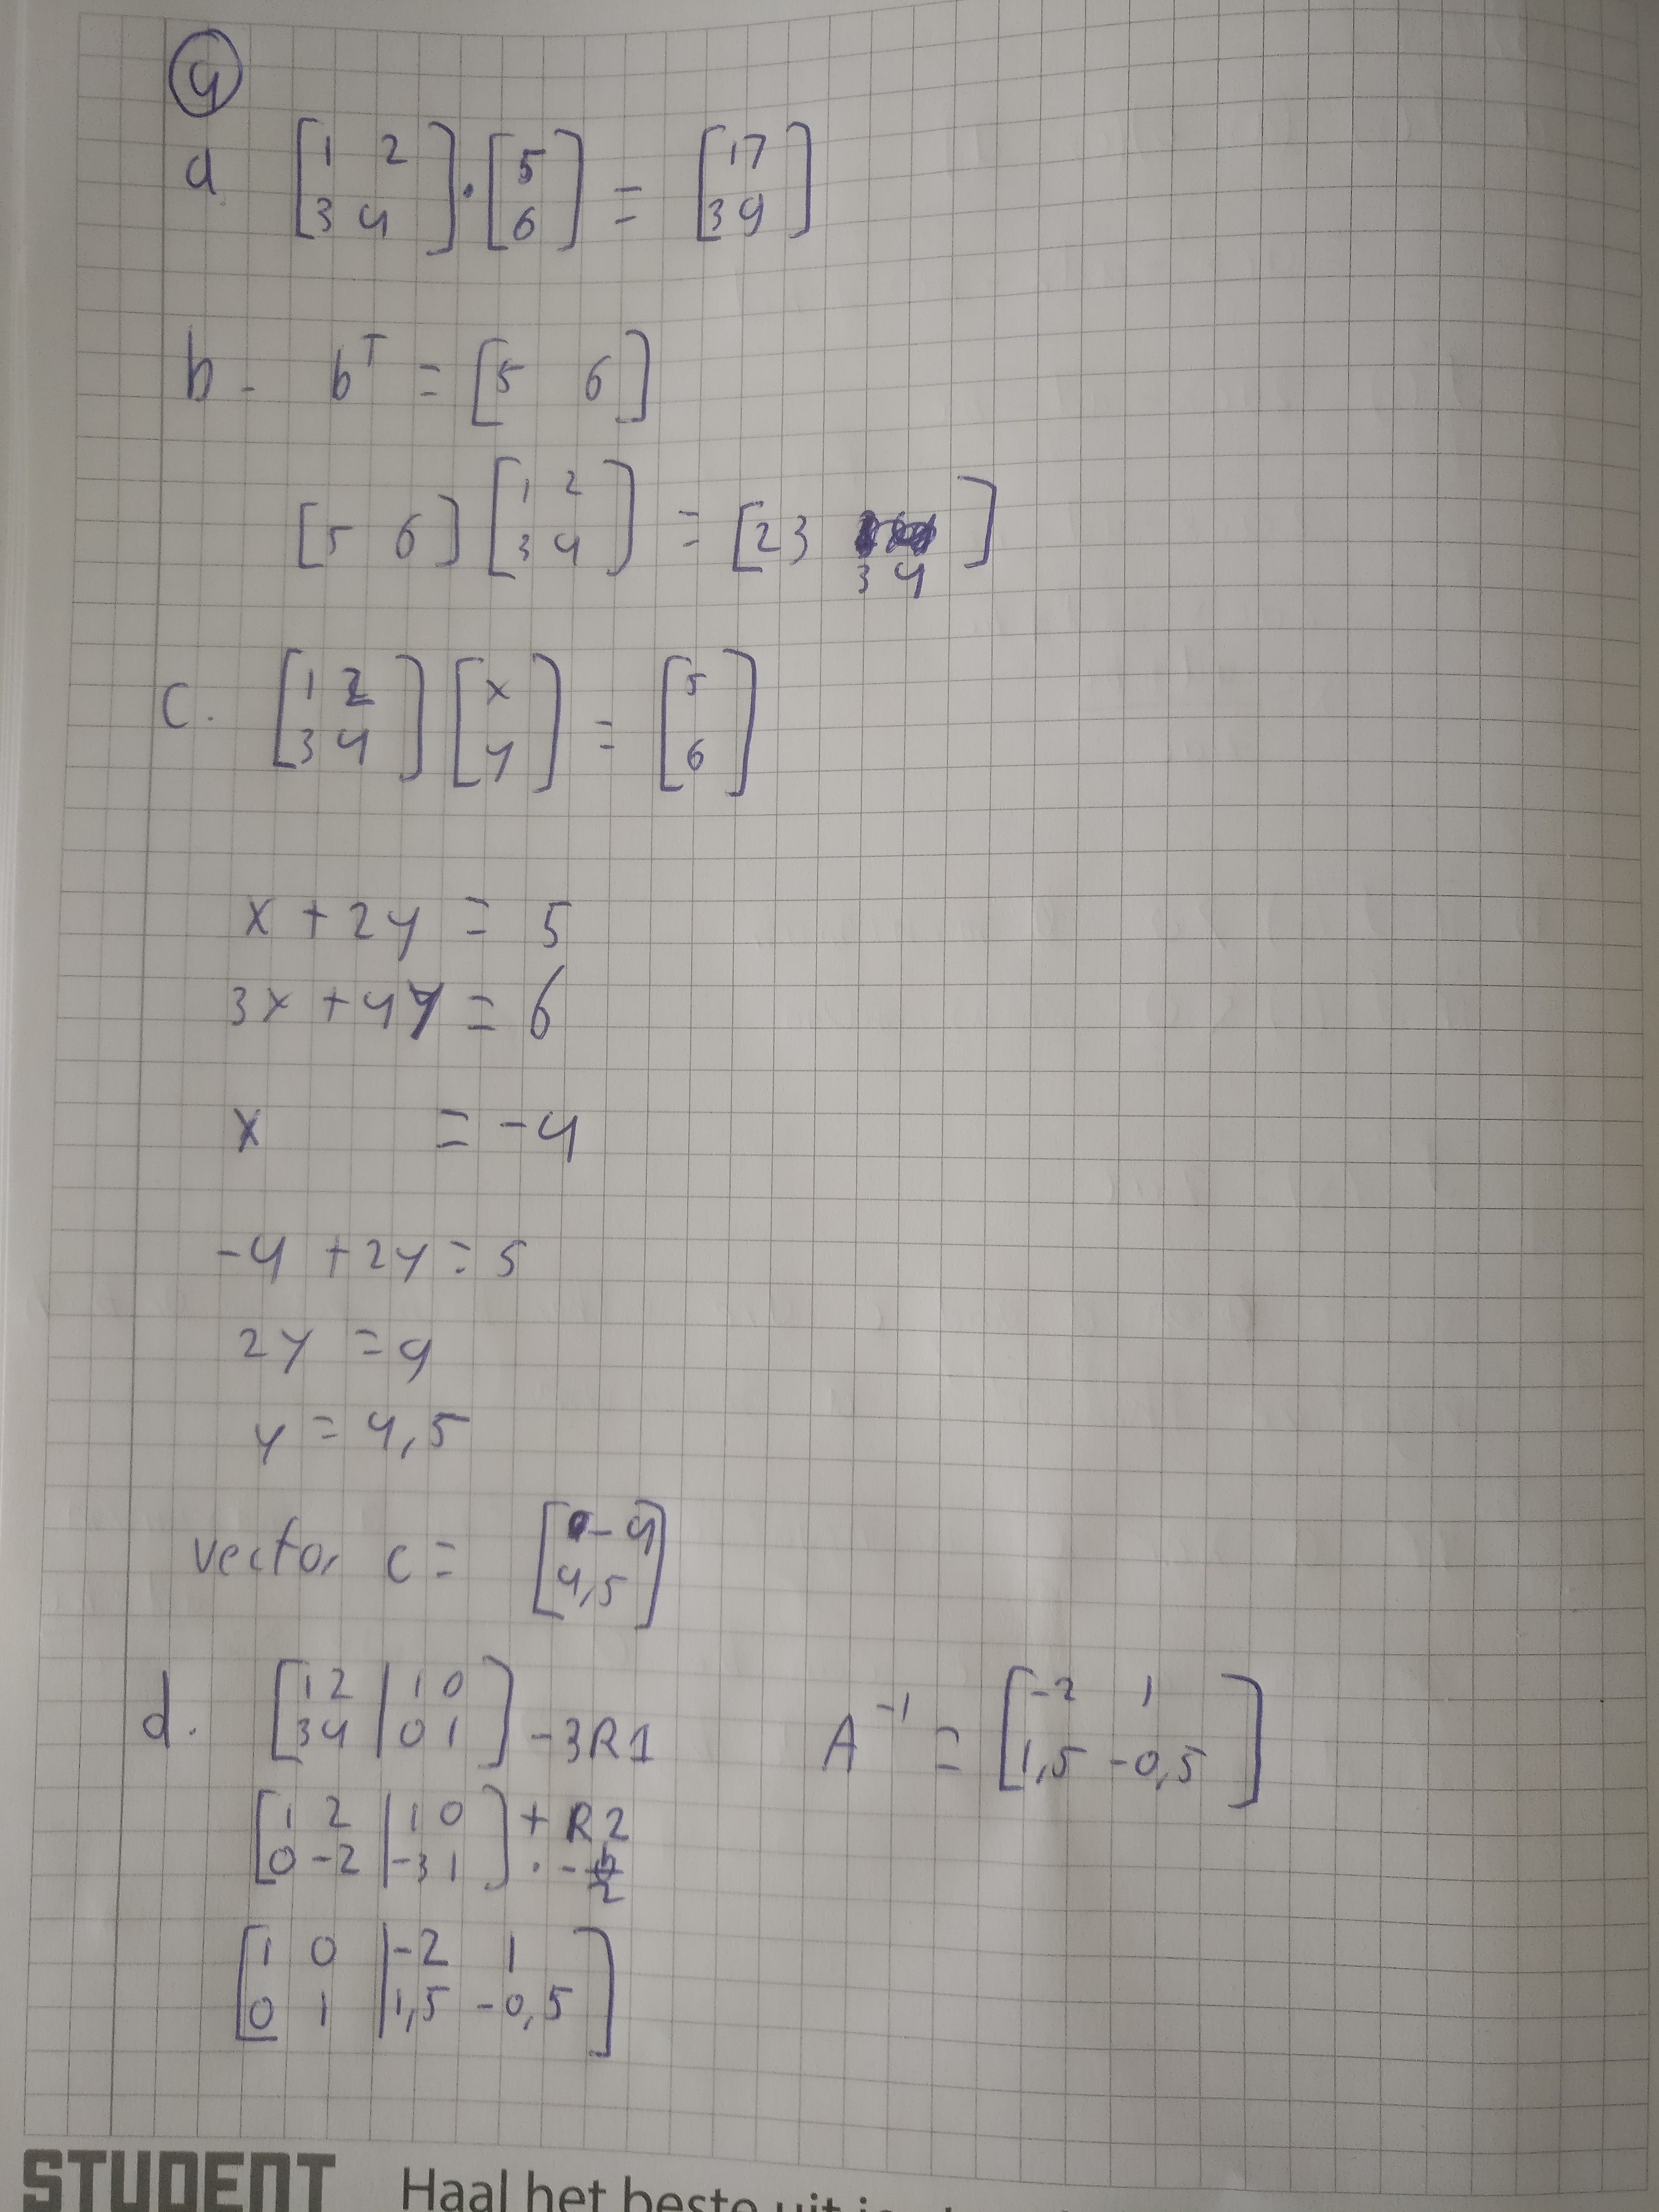 4
a [1 2
3 4] · [5
6] = [17
39]
b - bᵀ = [5 6]
[5 6] [1 2
3 4] = [23 34]
c. [1 2
3 4] [x
y] = [5
6]
x + 2y = 5
3x + 4y = 6
x = -4
-4 + 2y = 5
2y = 9
y = 4,5
vector c = [-4
4,5]
d. [1 2 | 1 0
3 4 | 0 1] -3R1
A⁻¹ = [-2 1
1,5 -0,5]
[1 2 | 1 0 + R2
0 -2 | -3 1] · -½
[1 0 | -2 1
0 1 | 1,5 -0,5]
STUDENT Haal het beste uit